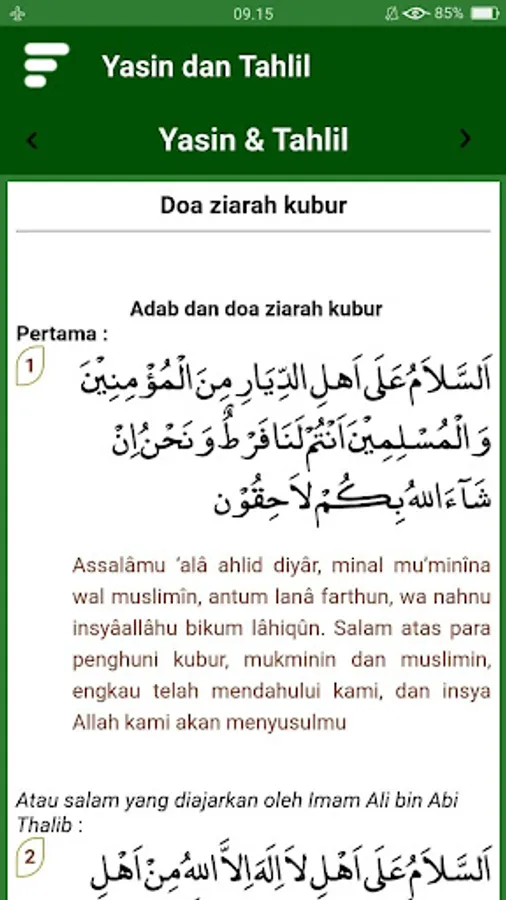 09.15
85%
Yasin dan Tahlil
Yasin & Tahlil
Doa ziarah kubur
Adab dan doa ziarah kubur
Pertama :
1
اَلسَّلاَمُ عَلَى اَهلِ الدِّيَارِ مِنَ الْمُؤْمِنِيْنَ
وَالْمُسْلِمِيْنَ اَنْتُمْ لَنَا فَرْطٌ وَنَحْنُ اِنْ
شَآءَ اللهُ بِكُمْ لاَحِقُوْن
Assalâmu ‘alâ ahlid diyâr, minal mu’minîna
wal muslimîn, antum lanâ farthun, wa nahnu
insyâallâhu bikum lâhiqûn. Salam atas para
penghuni kubur, mukminin dan muslimin,
engkau telah mendahului kami, dan insya
Allah kami akan menyusulmu
Atau salam yang diajarkan oleh Imam Ali bin Abi
Thalib :
2
اَلسَّلاَمُ عَلَى اَهْلِ لاَ اِلَهَ اِلاَّ اللهُ مِنْ اَهْلِ